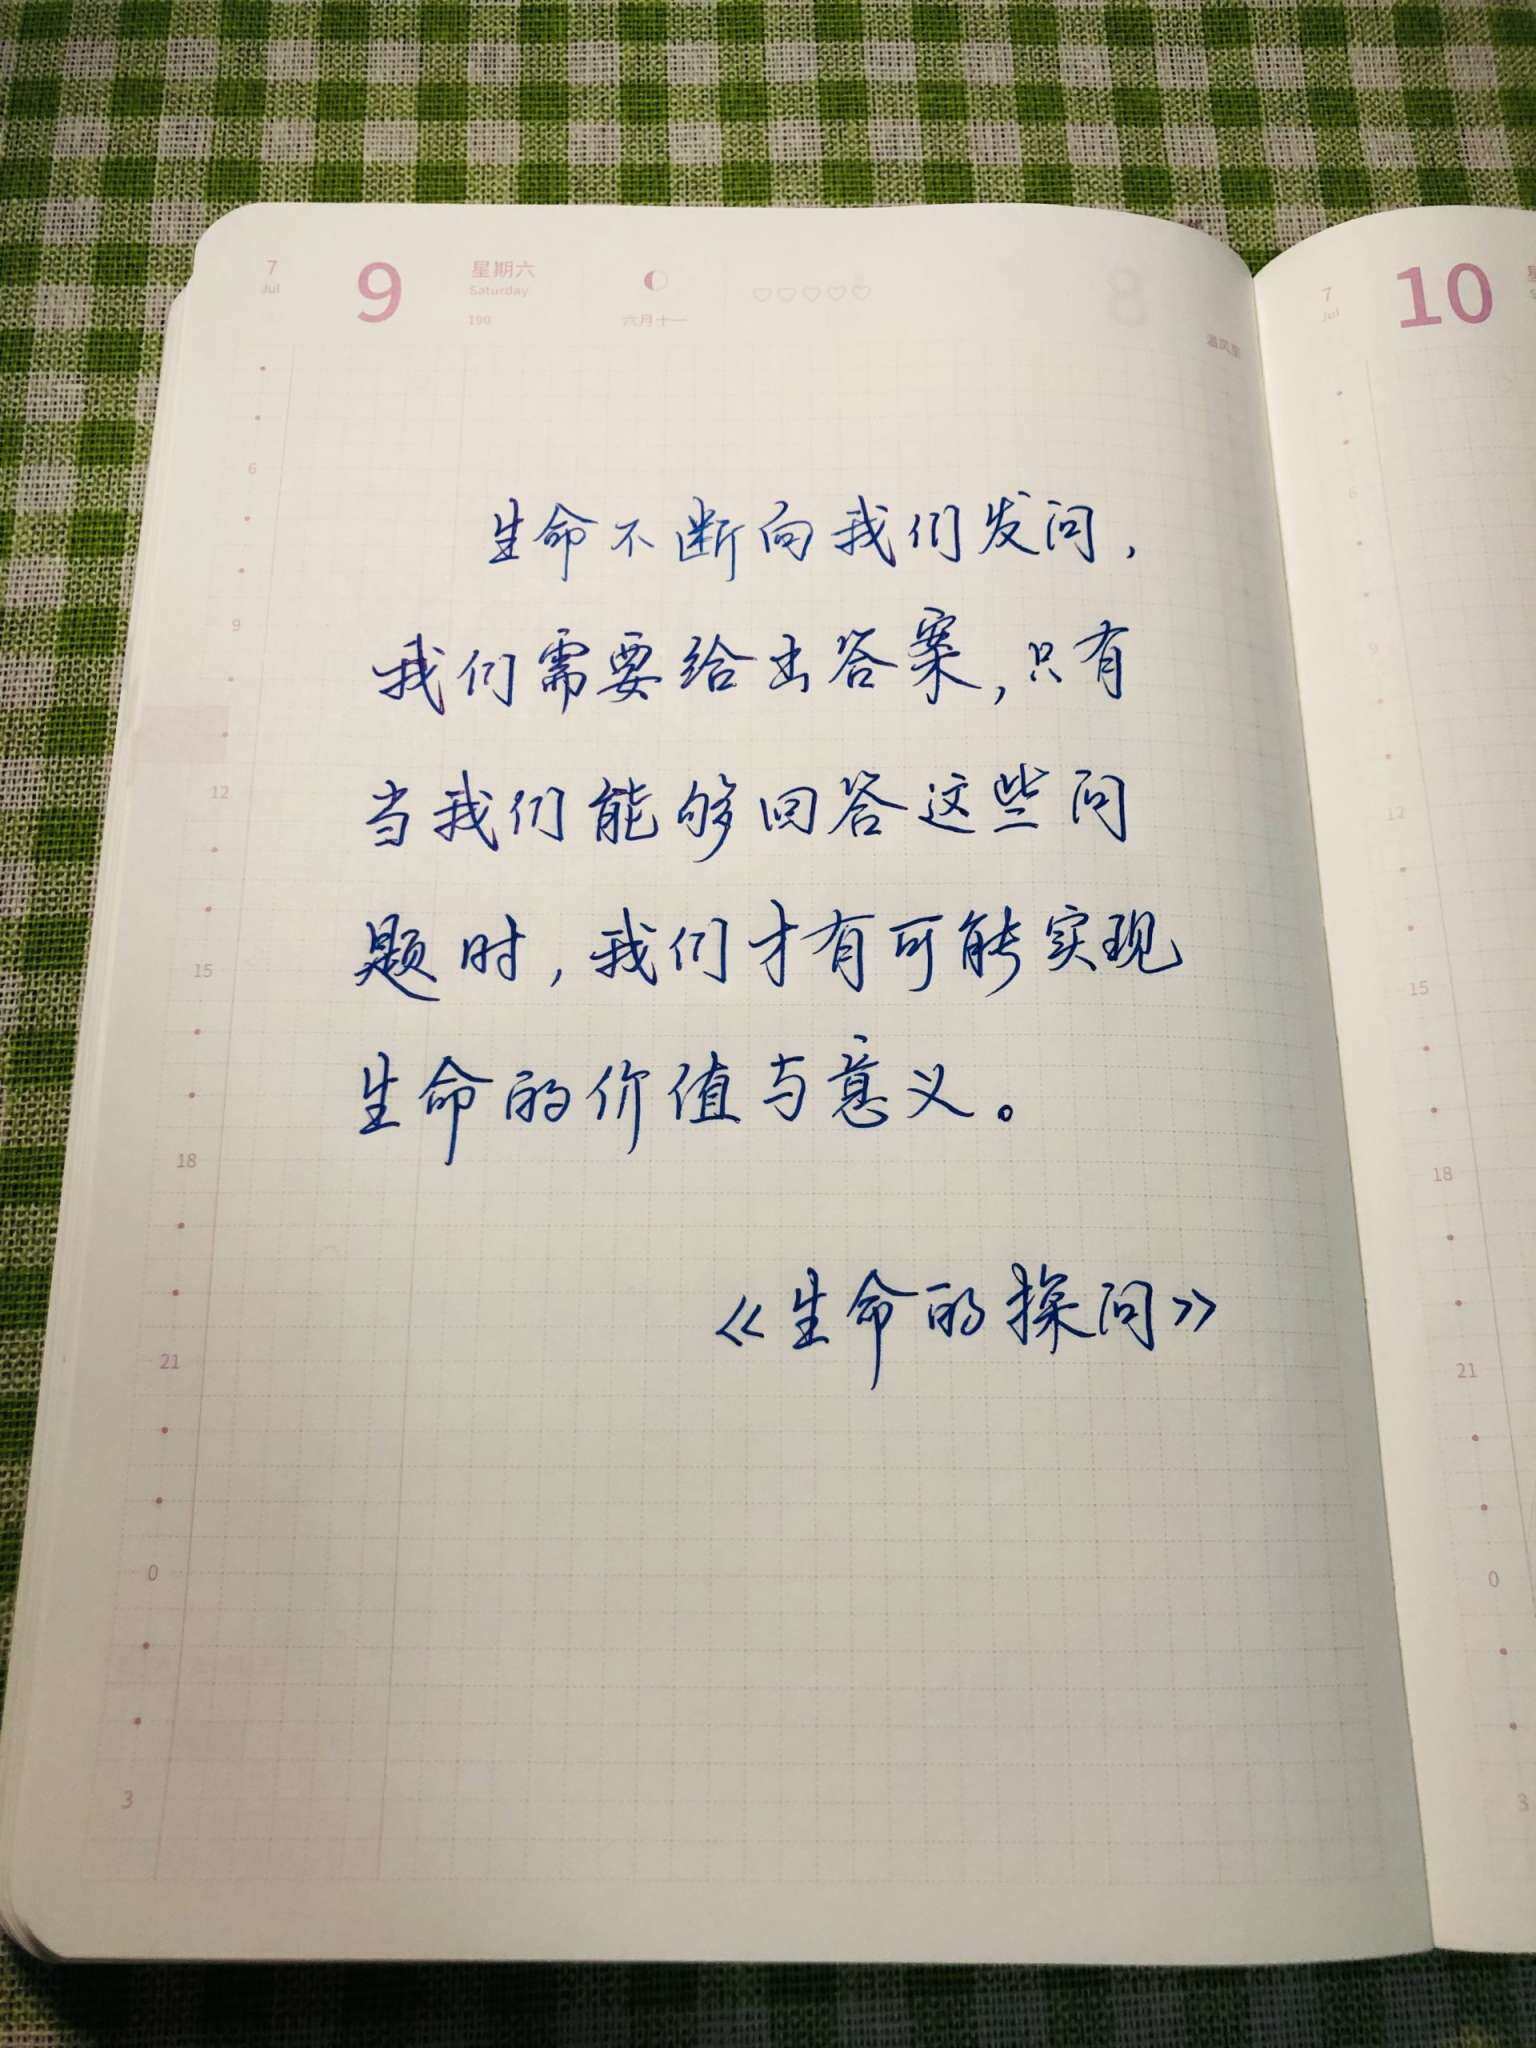 7 Jul 9 星期六 Saturday 190 六月十一
8
温风至
7 Jul 10
生命不断向我们发问，
我们需要给出答案，只有
当我们能够回答这些问
题时，我们才有可能实现
生命的价值与意义。
《生命的探问》
6
9
12
15
18
21
0
3
6
9
12
15
18
21
0
3